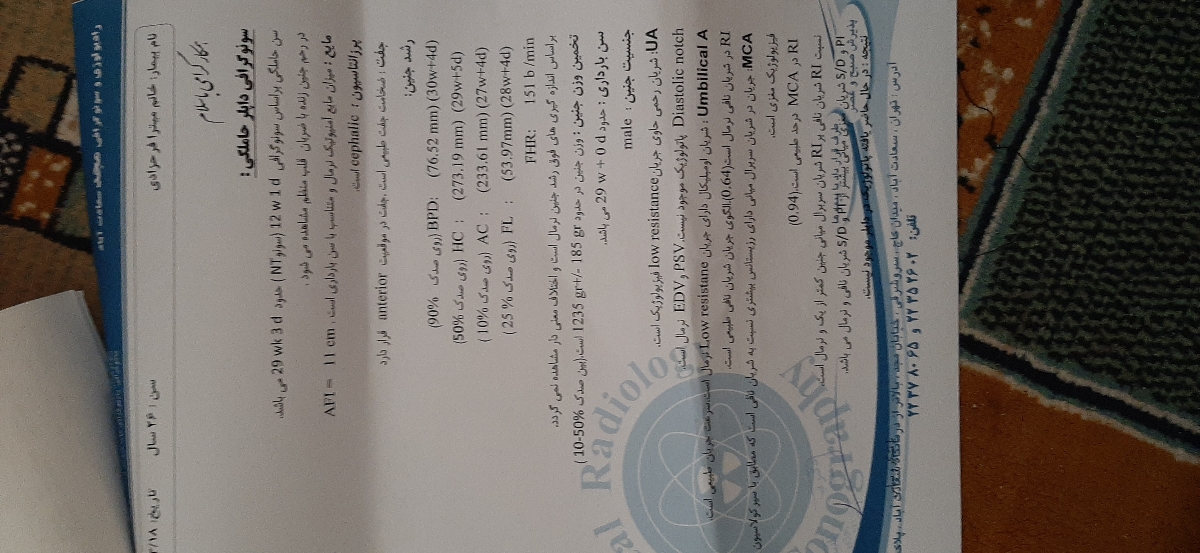 رادیولوژی و سونوگرافی هیجد سعادت آباد
نام بیمار: خانم مهتا فرجزادی سن : ۲۶ سال تاریخ: ۲/۱۸
همکار گرامی با سلام
سونوگرافی داپلر حاملگی :
سن حاملگی براساس سونوگرافی 12 w 1 d (سونو NT) حدود 29 wk 3 d می باشد.
در رحم جنین زنده با ضربان قلب منظم مشاهده می شود.
مایع : میزان مایع آمنیوتیک نرمال و متناسب با سن بارداری است . AFI = 11 cm
پرزانتاسیون : cephalic است.
جفت : ضخامت جفت طبیعی است .جفت در موقعیت anterior قرار دارد
رشد جنین:
BPD: (76.52 mm) (30w+4d) (روی صدک 90%)
HC : (273.19 mm) (29w+5d) (روی صدک 50%)
AC : (233.61 mm) (27w+4d) (روی صدک 10%)
FL : (53.97mm) (28w+4d) (روی صدک 25 %)
FHR: 151 b/min
براساس اندازه گیری های فوق رشد جنین نرمال است و اختلاف معنی دار مشاهده نمی گردد.
تخمین وزن جنین : وزن جنین در حدود 1235 gr+/- 185 gr است.(بین صدک 10-50% )
سن بارداری : حدود 29 w + 0 d می باشد.
جنسیت جنین : male
UA: شریان رحمی حاوی جریان low resistance فیزیولوژیک است.
Diastolic notch پاتولوژیک موجود نیست. PSV و EDV نرمال است.
Umbilical A : شریان اومبیلیکال دارای جریان Low resistane نرمال است.سرعت جریان طبیعی است.
RI در شریان نافی نرمال است(0.64).الگوی جریان شریان نافی طبیعی است.
MCA: جریان در شریان سربرال میانی دارای رزیستانس بیشتری نسبت به شریان نافی است که مطابق با سیرکولاسیون
فیزیولوژیک مغزی است.
RI در MCA درحد طبیعی است.(0.94)
نسبت RI شریان نافی بر RI شریان سربرال میانی جنین کمتر از یک و نرمال است.
PI و S/D شریان سربرال میانی بیشتر از PI و S/D شریان نافی و نرمال می باشد.
نتیجه : در حال حاضر یافته پاتولوژیک در داپلر موجود نیست.
پذیرش صبح و عصر
آدرس: تهران ، سعادت آباد ، میدان کاج ، سروشرقی ، خیابان مجد ، بالاتر از درمانگاه سعادت آباد ، پلاک
تلفن: ۲۲۳۵۲۶۰۲ و ۲۲۳۷۸۰۶۵
al Radiolog
onography